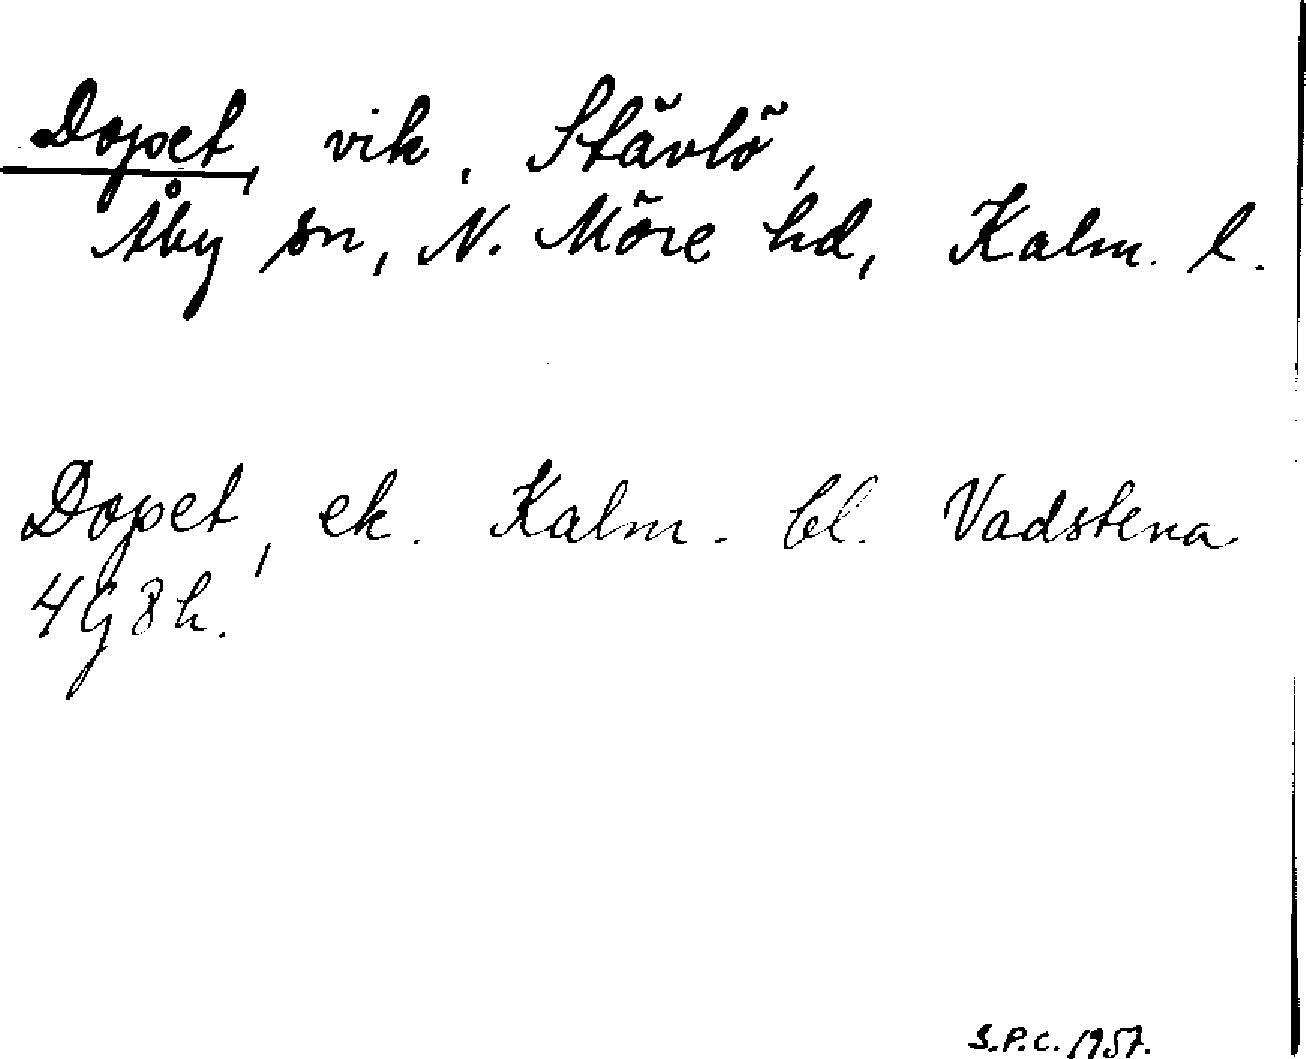 Dopet, vik, Stävlö,
Åby sn, N. Möre hd, Kalm. l.
Dopet, ek. Kalm. bl. Vadstena
4 G 8 h.
S.P.C. 1957.